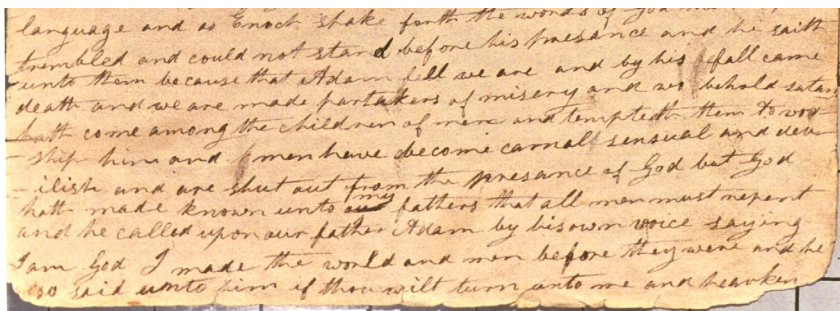 language and as Enoch spake forth the words of God the
trembled and could not stand before his presance and he saith
unto them because that Adam fell we are and by his fall came
death and we are made partakers of misery and wo behold satan
hath come among the children of men and tempteth them to wor
-ship him and men have become carnall sensual and dev
-ilish and are shut out from the presance of God but God
hath made known unto my fathers that all men must repent
and he called upon our father Adam by his own voice saying
I am God I made the world and men before they were and he
also said unto him if thou wilt turn unto me and hearken